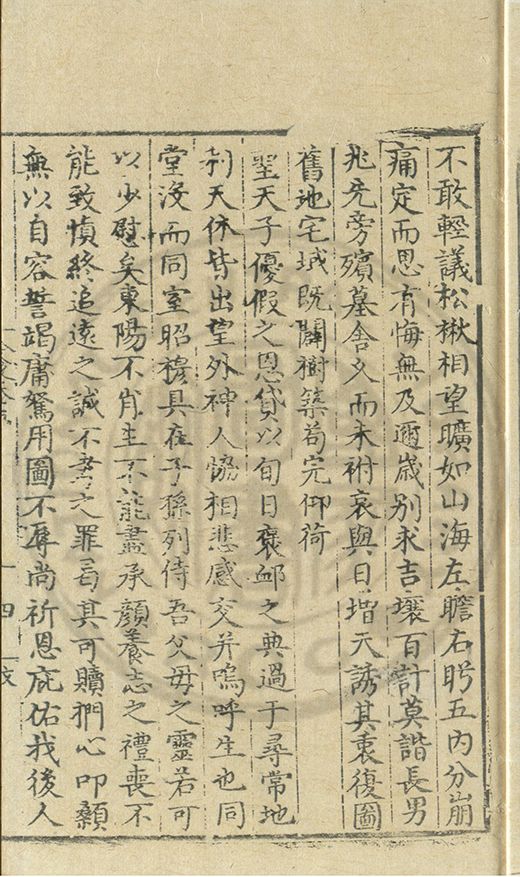 不敢輕議松楸相望曠如山海左瞻右眄五內分崩
痛定而思有悔無及邇歲別求吉壤百計莫諧長男
兆先旁殯墓舍久而未祔哀與日增天誘其衷復圖
舊地宅域既闢樹築苟完仰荷
聖天子優假之恩貸以旬日褒卹之典過于尋常地
利天休皆出望外神人恊相悲感交并嗚呼生也同
堂沒而同室昭穆具在子孫列侍吾父母之靈若可
以少慰矣東陽不肖生不能盡承顏養志之禮喪不
能致慎終追遠之誠不孝之罪曷其可贖捫心叩顙
無以自容誓竭庸駑用圖不辱尚祈恩庇佑我後人
十四